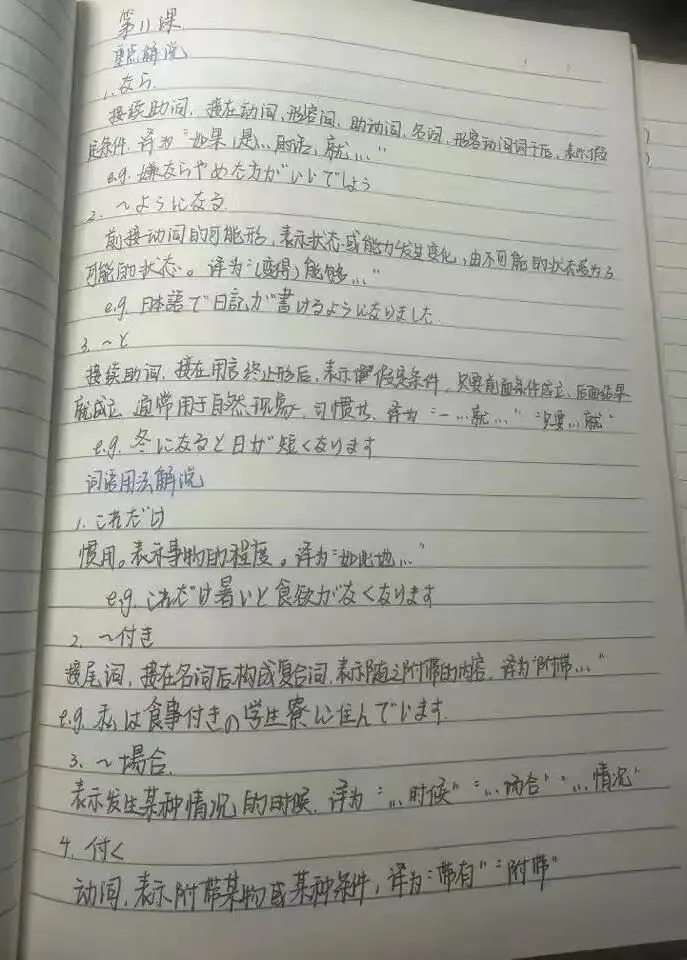 第11课
重点解说
1. なら
接续助词，接在动词、形容词、助动词、名词、形容动词词干后，表示假
定条件，译为“如果(是)…的话，就…”
e.g. 嫌ならやめた方がいいでしょう
2. ～ようになる
前接动词的可能形，表示状态或能力发生变化，由不可能的状态变为了
可能的状态。译为“(变得)能够…”
e.g. 日本語で日記が書けるようになりました
3. ～と
接续助词，接在用言终止形后，表示假定条件，只要前面条件成立，后面结果
就成立，通常用于自然现象、习惯等，译为“一…就…”“只要…就”
e.g. 冬になると日が短くなります
词语用法解说
1. これだけ
惯用。表示事物的程度。译为“如此地…”
e.g. これだけ暑いと食欲がなくなります
2. ～付き
接尾词，接在名词后构成复合词，表示随之附带的内容，译为“附带…”
e.g. 私は食事付きの学生寮に住んでいます
3. ～場合
表示发生某种情况的时候，译为“…时候”“…场合”“…情况”
4. 付く
动词，表示附带某物或某种条件，译为“带有”“附带”